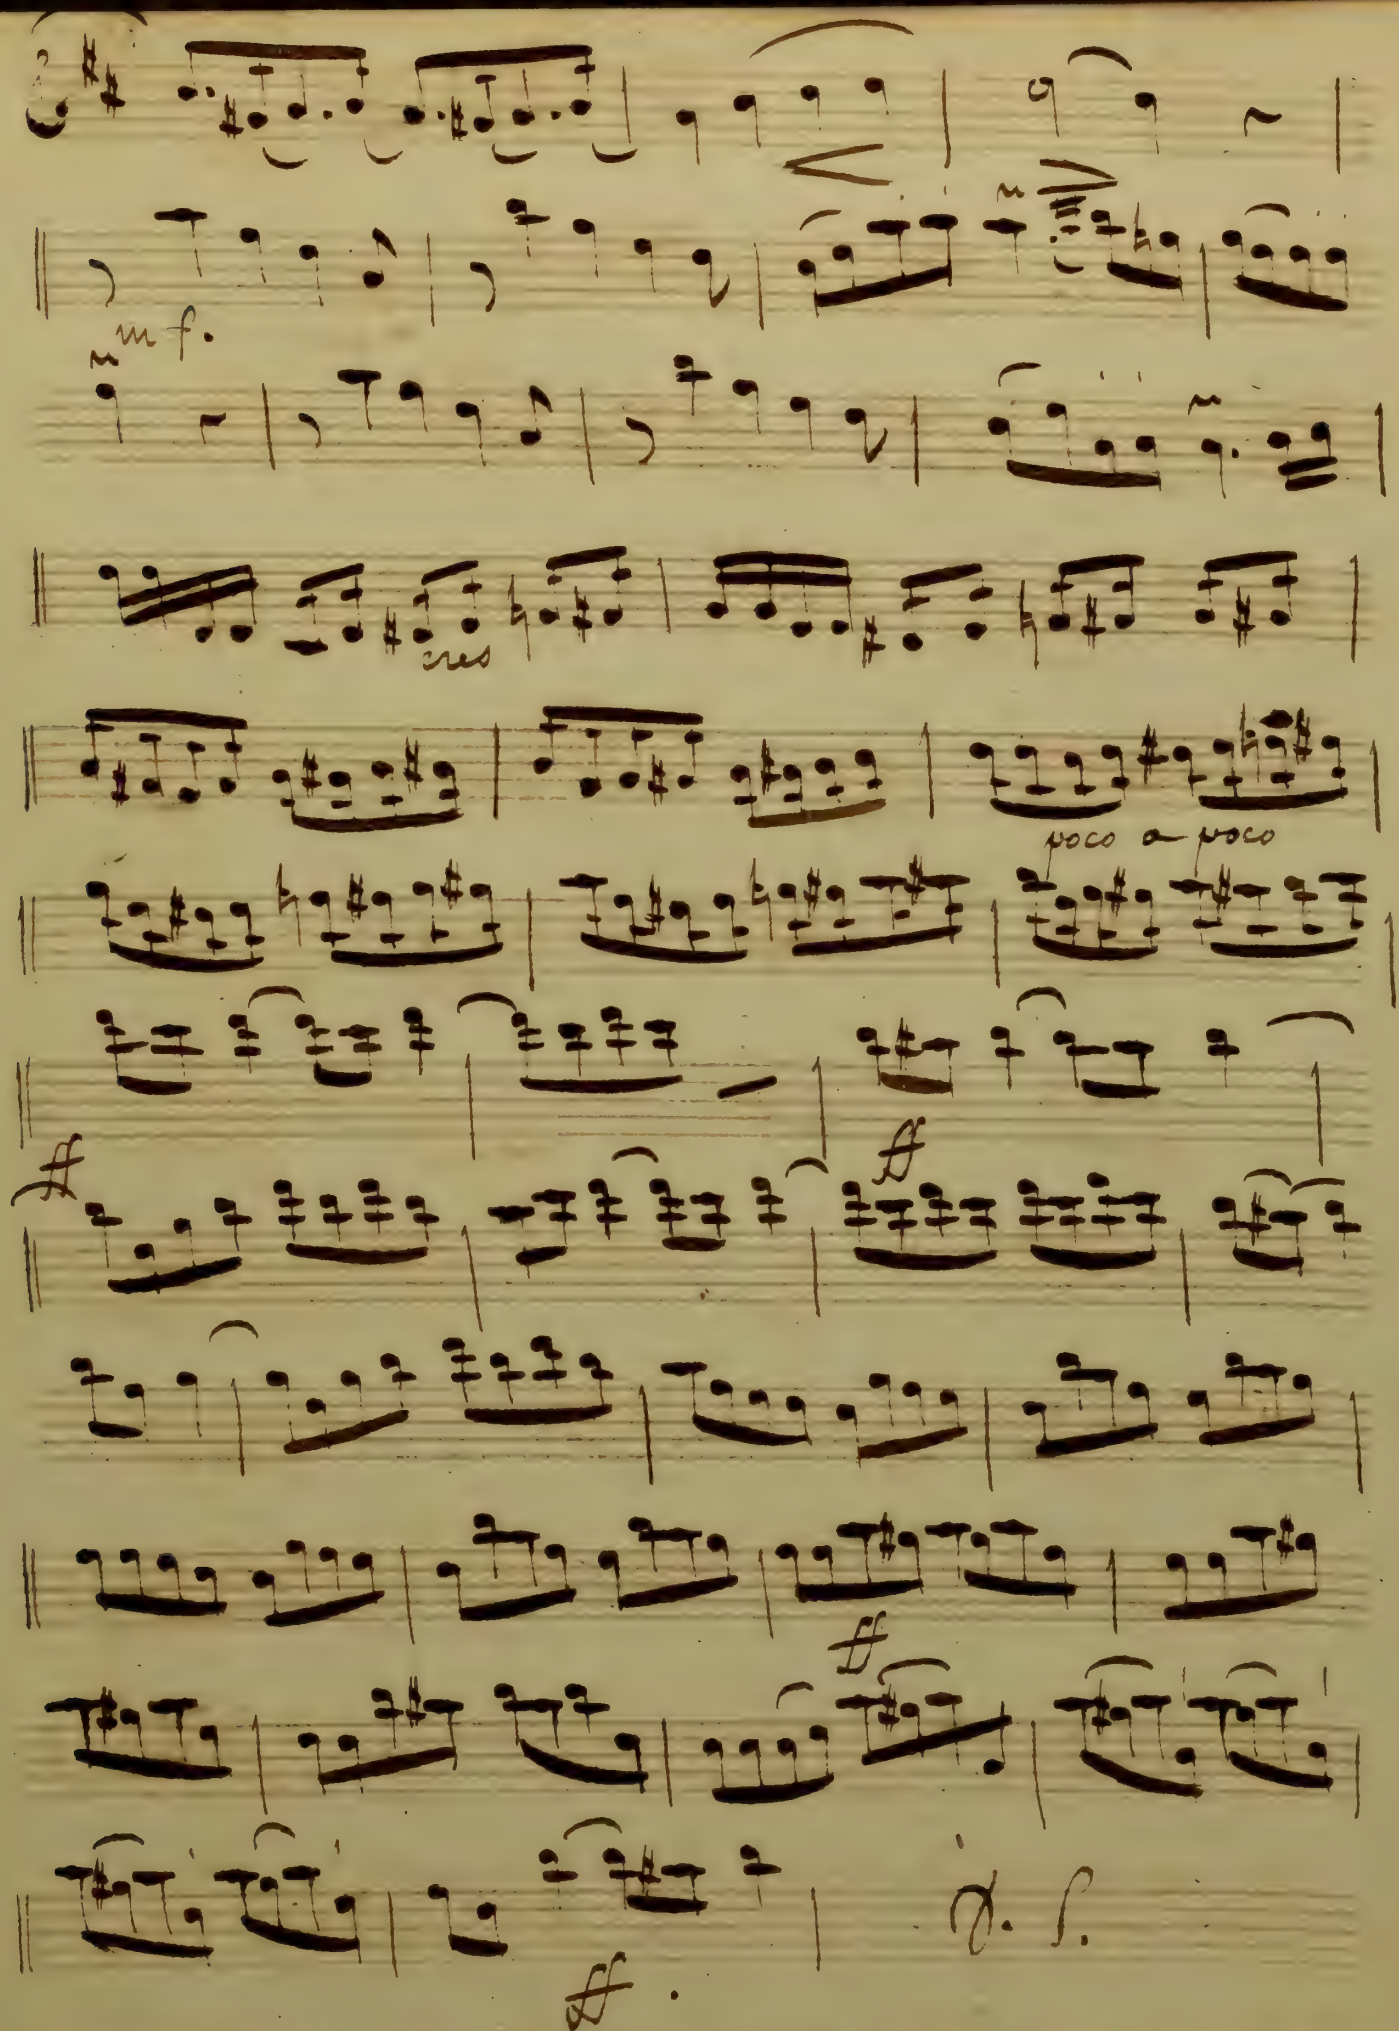 mf.
cres
poco a poco
ff
ff
ff
D. S.
ff.